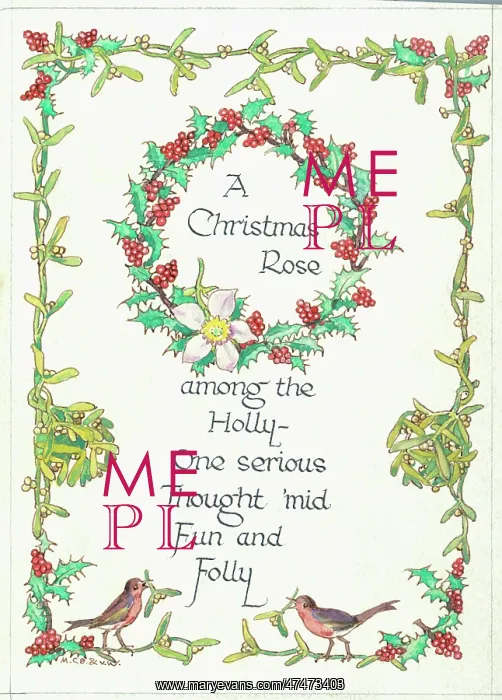 A
Christmas
Rose
among the
Holly-
One serious
Thought 'mid
Fun and
Folly
ME
PL
ME
PL
M.C.B. & V.W.
www.maryevans.com/47473403